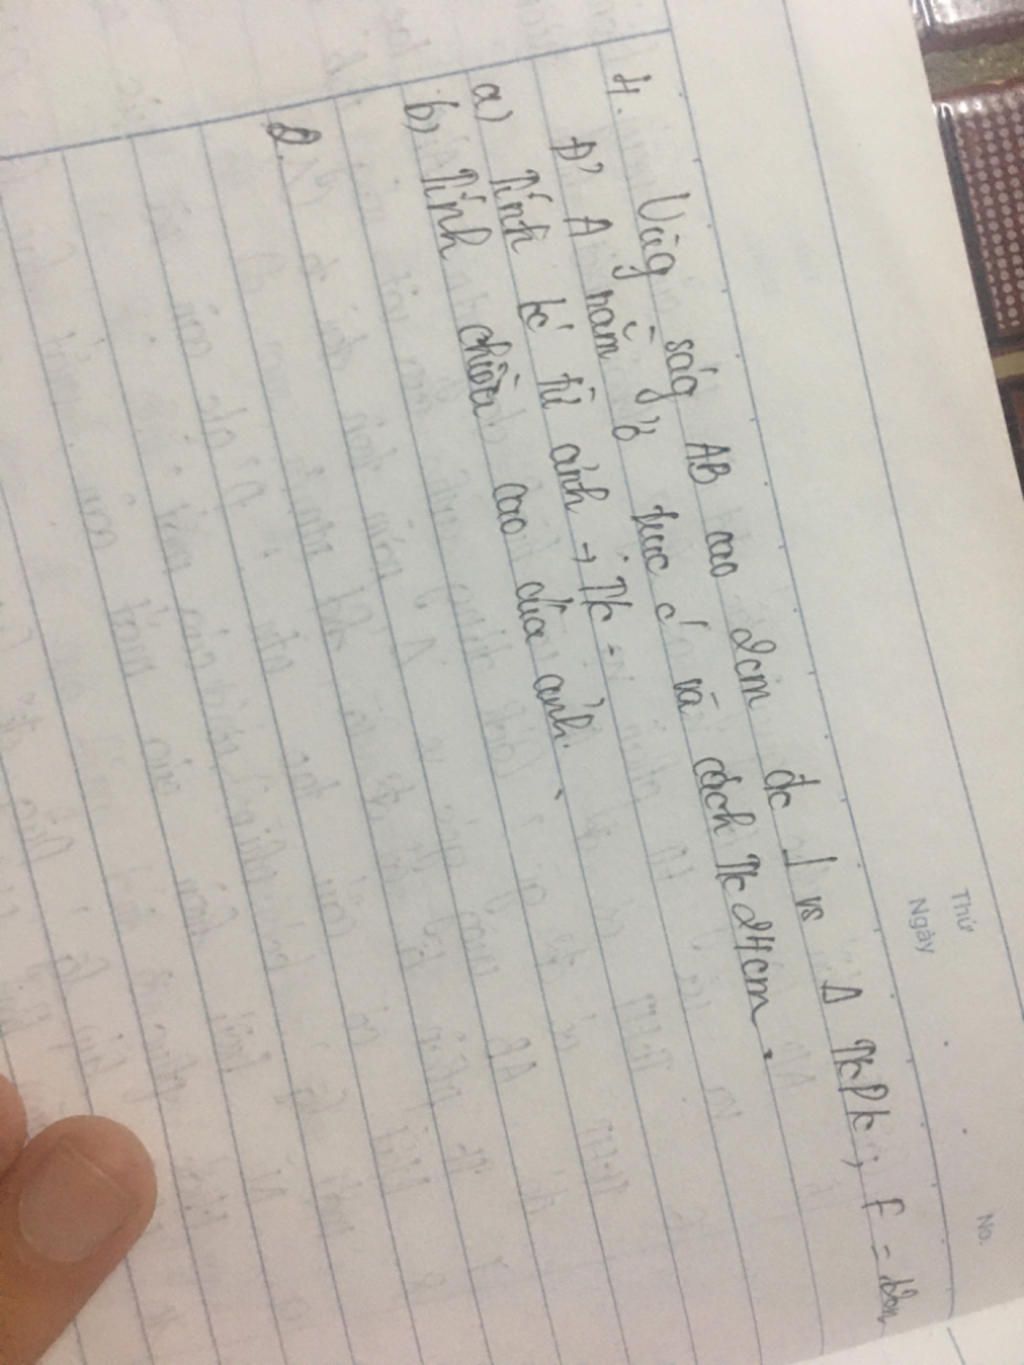 Thứ
Ngày
No.
4. Vùg ság AB cao 2cm đc ⊥ vs Δ TKPK, F = 12cm
Đ' A nằm ở trục c' và cách TK 24cm.
a) Tính k/c từ ảnh → TK.
b) Tính chiều cao của ảnh.
2.